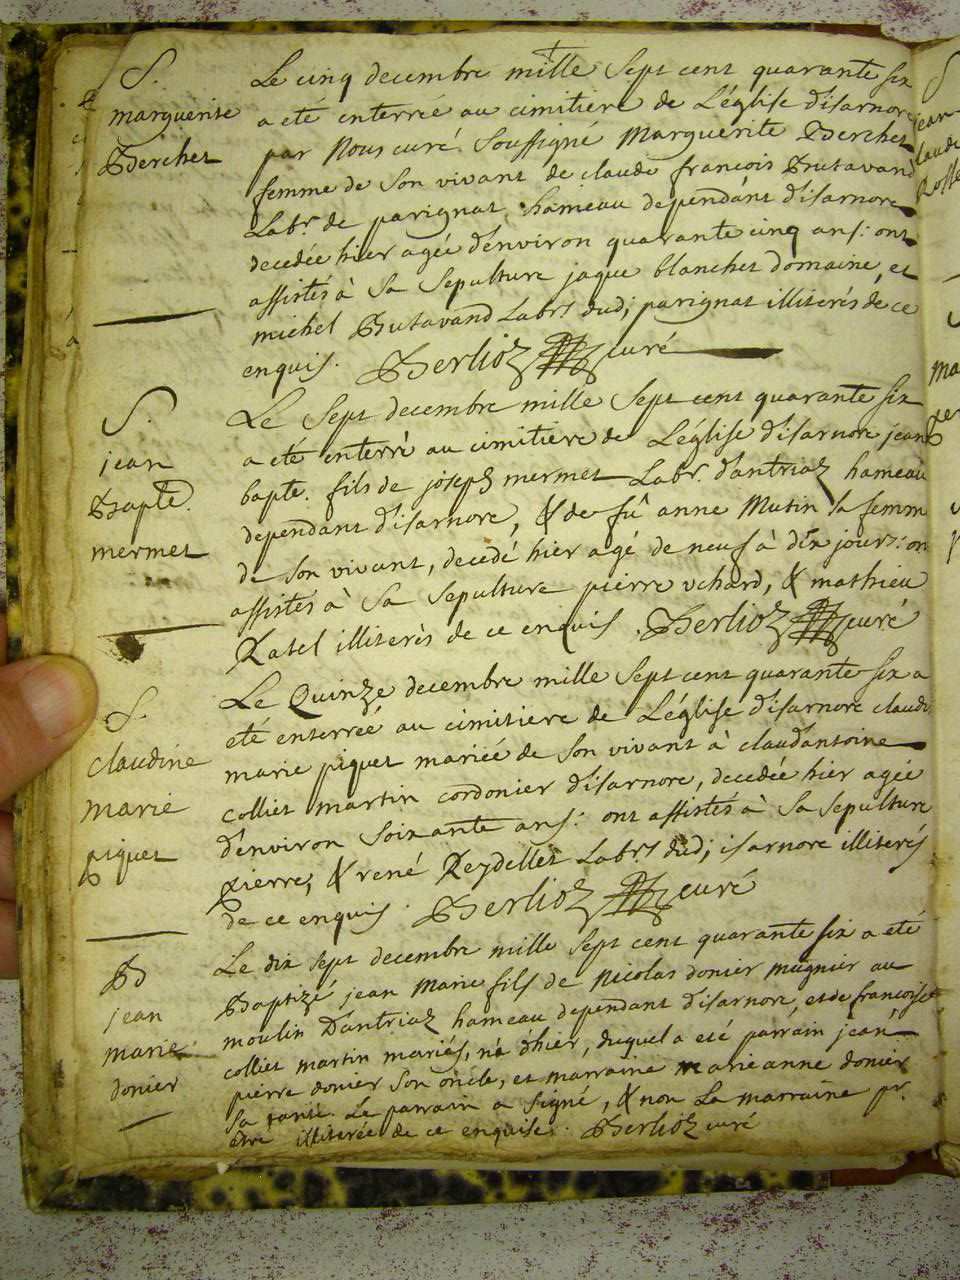 S.
marguerite
Berchet
Le cinq decembre mille sept cent quarante six
a eté enterrée au cimitiere de L'église d'isarnore
par Nous curé soussigné Marguerite Berchet
femme de son vivant de claude françois Butavand
Labr. de parignat, hameau dependant d'isarnore
decedée hier agée d'environ quarante cinq ans: ont
assistés à sa sepulture jaque blanchet domaine, et
michel Butavand Labrs. dud; parignat illiterés de ce
enquis. Berlioz curé
S.
jean
Bapte.
mermet
Le sept decembre mille sept cent quarante six
a eté enterré au cimitiere de L'église d'isarnore jean
bapte. fils de joseph mermet Labr. d'antriaz hameau
dependant d'isarnore, & de fû anne Mutin sa femm
de son vivant, decedé hier agé de neuf à dix jours: on
assistés à sa sepulture pierre uchard, & mathieu
Ratel illiterés de ce enquis. Berlioz curé
S.
claudine
marie
piquet
Le Quinze decembre mille sept cent quarante six a
eté enterreé au cimitiere de L'église d'isarnore claudi
marie piquet mariée de son vivant à claud'antoine
colliet martin cordonier d'isarnore, decedée hier agée
d'environ soixante ans: ont assistés à sa sepulture
pierre, & rené Reydellet Labrs. dud; isarnore illiterés
de ce enquis. Berlioz curé
B
jean
marie
donier
Le dix sept decembre mille sept cent quarante six a eté
Baptizé jean Marie fils de Nicolas donier mugnier au
moulin D'antriaz hameau dependant d'isarnore, et de françoise
colliet martin mariés, né d'hier, duquel a eté parrain jean
pierre donier son oncle, et marraine marie anne donier
sa tante. Le parrain a signé, & non La marraine pr.
etre illiterée de ce enquise. Berlioz curé